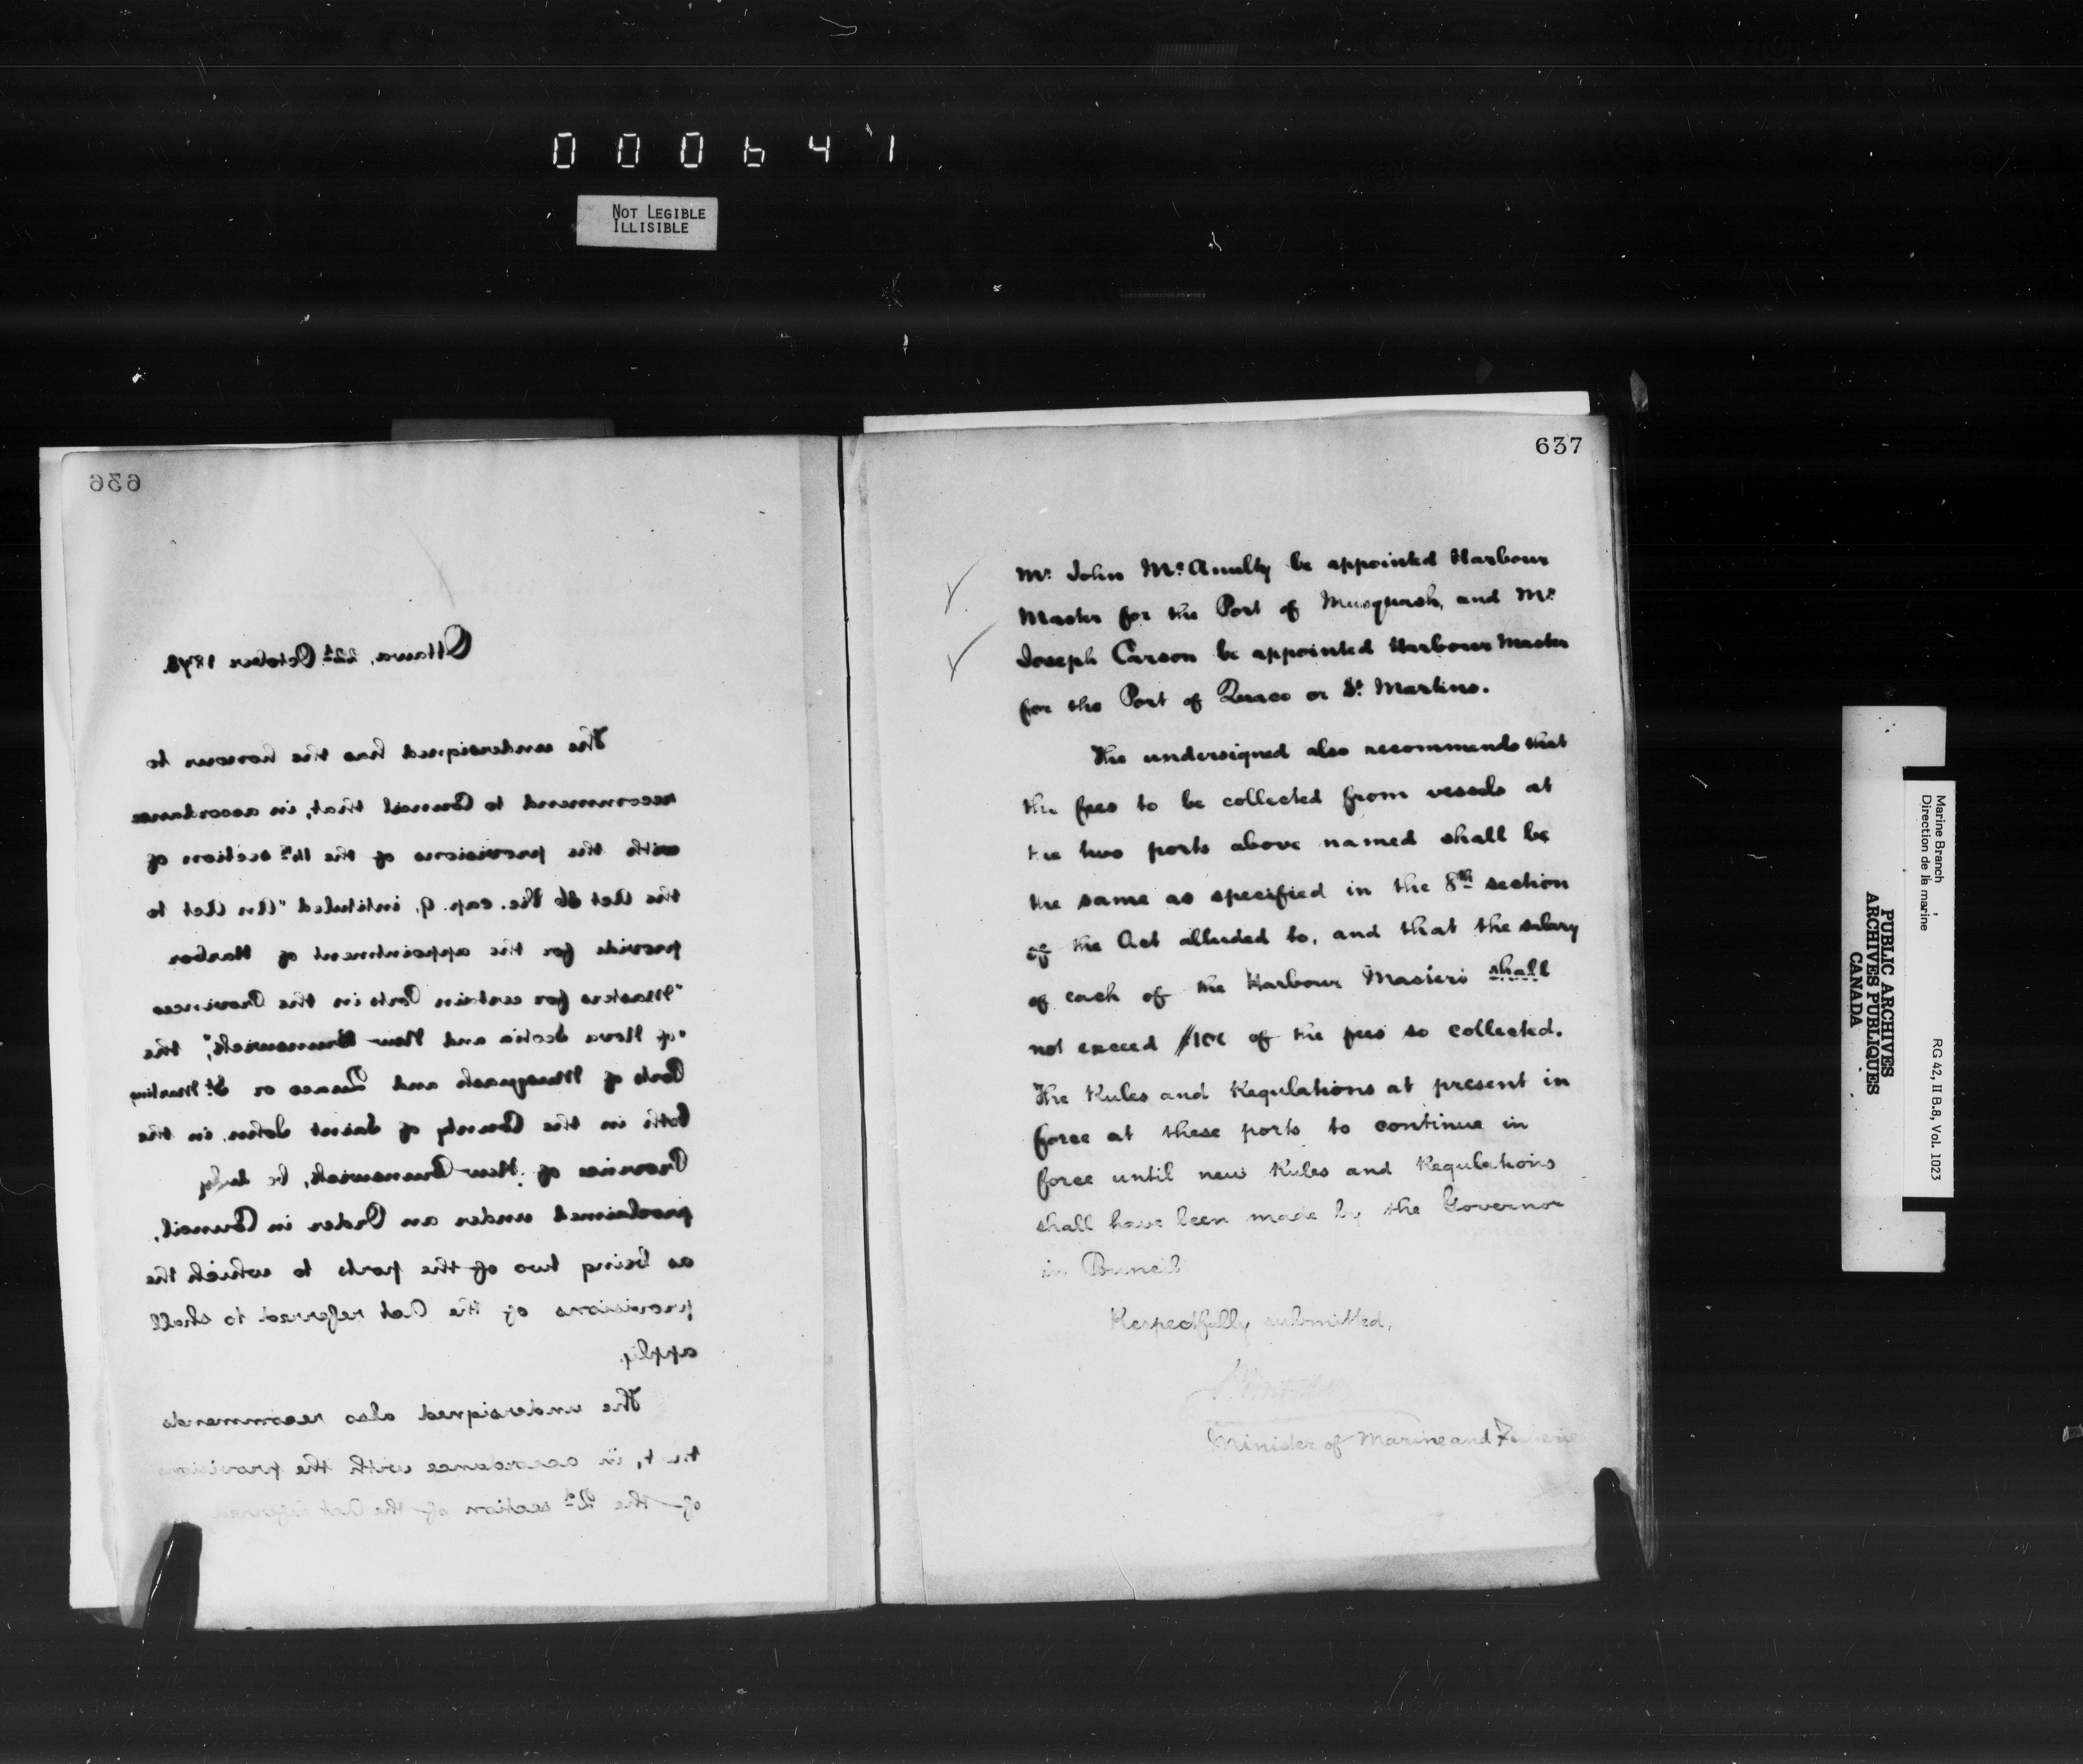 000641
NOT LEGIBLE
ILLISIBLE
636
Ottawa, 22d October 1878.
The undersigned has the honour to
recommend to Council that, in accordance
with the provisions of the 14th section of
the Act 36 Vic. cap. 9, intituled "An Act to
provide for the appointment of Harbor
"Masters for certain Ports in the Provinces
"of Nova Scotia and New Brunswick", the
Ports of Musquash and Quaco or St. Martins
both in the County of Saint John, in the
Province of New Brunswick, be duly
proclaimed under an Order in Council,
as being two of the ports to which the
provisions of the Act referred to shall
apply.
The undersigned also recommends
that, in accordance with the provisions
of the 2d section of the Act referred
637
Mr. John McAnulty be appointed Harbour
Master for the Port of Musquash, and Mr.
Joseph Carson be appointed Harbour Master
for the Port of Quaco or St. Martins.
The undersigned also recommends that
the fees to be collected from vessels at
the two ports above named shall be
the same as specified in the 8th section
of the Act alluded to, and that the salary
of each of the Harbour Masters shall
not exceed $100 of the fees so collected.
The Rules and Regulations at present in
force at these ports to continue in
force until new Rules and Regulations
shall have been made by the Governor
in Council
Respectfully submitted,
Minister of Marine and Fisheries
Marine Branch
Direction de la marine
RG 42, II B.8, Vol. 1023
PUBLIC ARCHIVES
ARCHIVES PUBLIQUES
CANADA